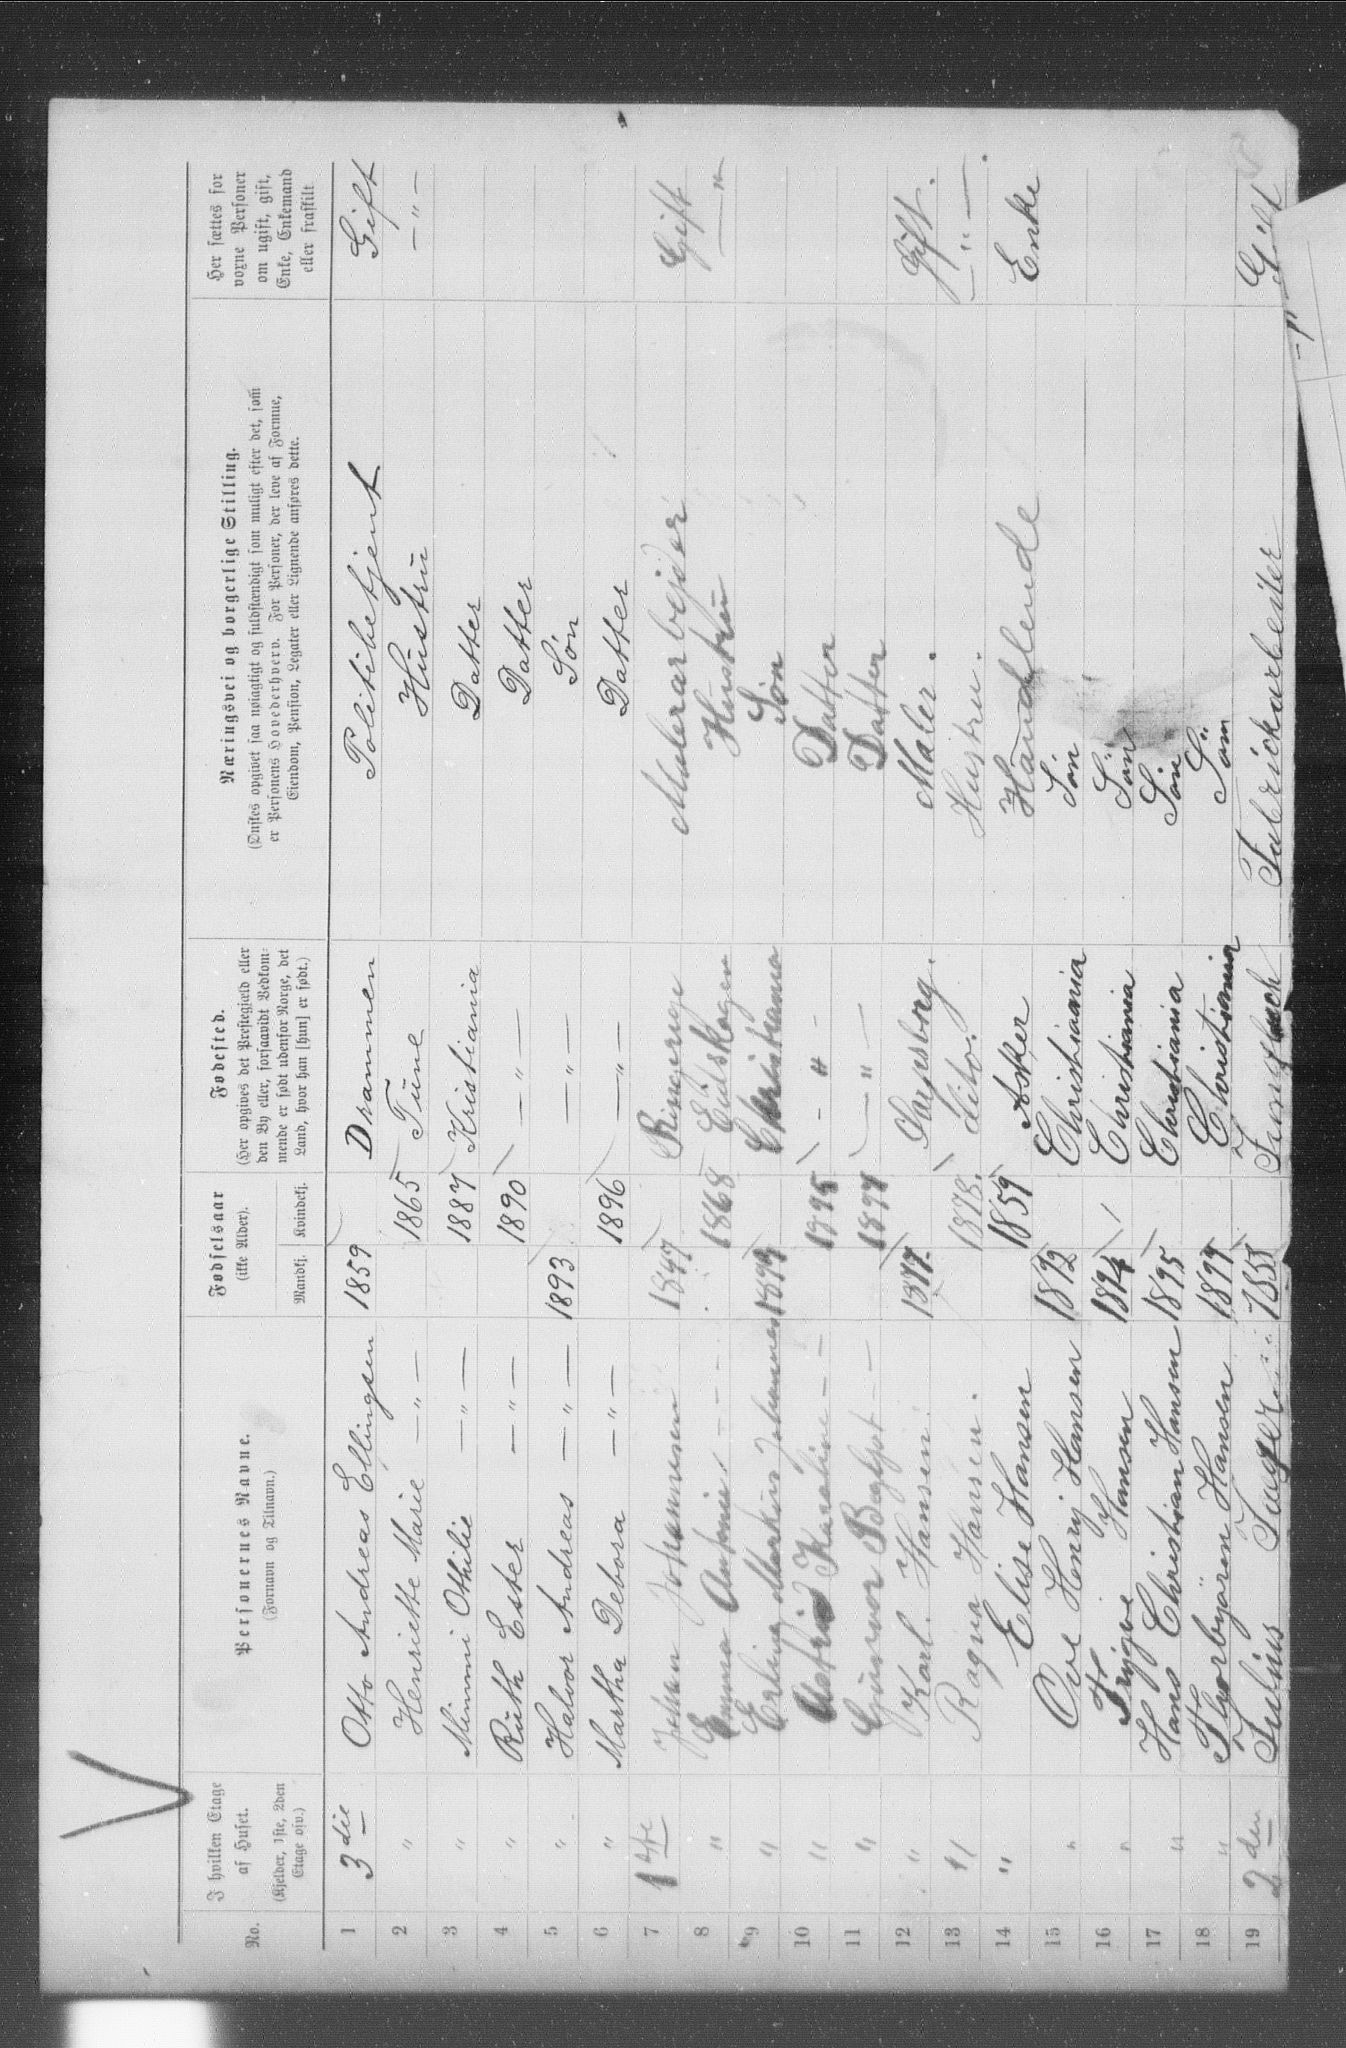 No.
I hvilken Etage af Huset. (Kjelder, 1ste, 2den Etage osv.)
Personernes Navne. (Fornavn og Tilnavn.)
Fødselsaar (ikke Alder). Mandkj. Kvindekj.
Fødested. (Her opgives det Prestegjeld eller den By eller, forsaavidt Vedkommende er født udenfor Norge, det Land, hvor han [hun] er født.)
Næringsvei og borgerlige Stilling. (Ønskes opgivet saa nøiagtigt og fuldstændigt som muligt efter det, som er Personens Hovederhverv. For Personer, der leve af Formue, Eiendom, Pension, Legater eller Lignende anføres dette.
Her sættes for voxne Personer om ugift, gift, Enke, Enkemand eller fraskilt
1 3die Otto Andreas Ellingsen 1859 Drammen Politibetjent Gift
2 " Henriette Marie — " — 1865 Tune Hustru — " —
3 " Mimmi Othilie — " — 1887 Kristiania Datter
4 " Ruth Ester — " — 1890 — " — Datter
5 " Halvor Andreas — " — 1893 — " — Søn
6 " Martha Debora — " — 1896 — " — Datter
7 1ste Johan Johannesen Ringerige Malerarbejder Gift
8 " Emma Antonie 1868 Eidskogen Hustru — " —
9 " Erling Markus Johannes Christiania Søn
10 " Astrid Karoline — 1895 - " - Datter
11 " Gunvor Bergljot — — " — Datter
12 " Karl Hansen. 1877 Sarpsborg. Maler. Gift.
13 " Ragna Hansen. 1878. dito. Hustru. — " —
14 " Elise Hansen 1859 Asker Handlende Enke
15 " Ove Henrij Hansen 1892 Christiania Søn
16 " Trygve Hansen 1894 Christiania Søn
17 " Hans Christian Hansen 1895 Christiania Søn
18 " Thorbjøren Hansen 1899 Christiania Søn
19 2den Julius Fabrickarbeiter Gift
— " —